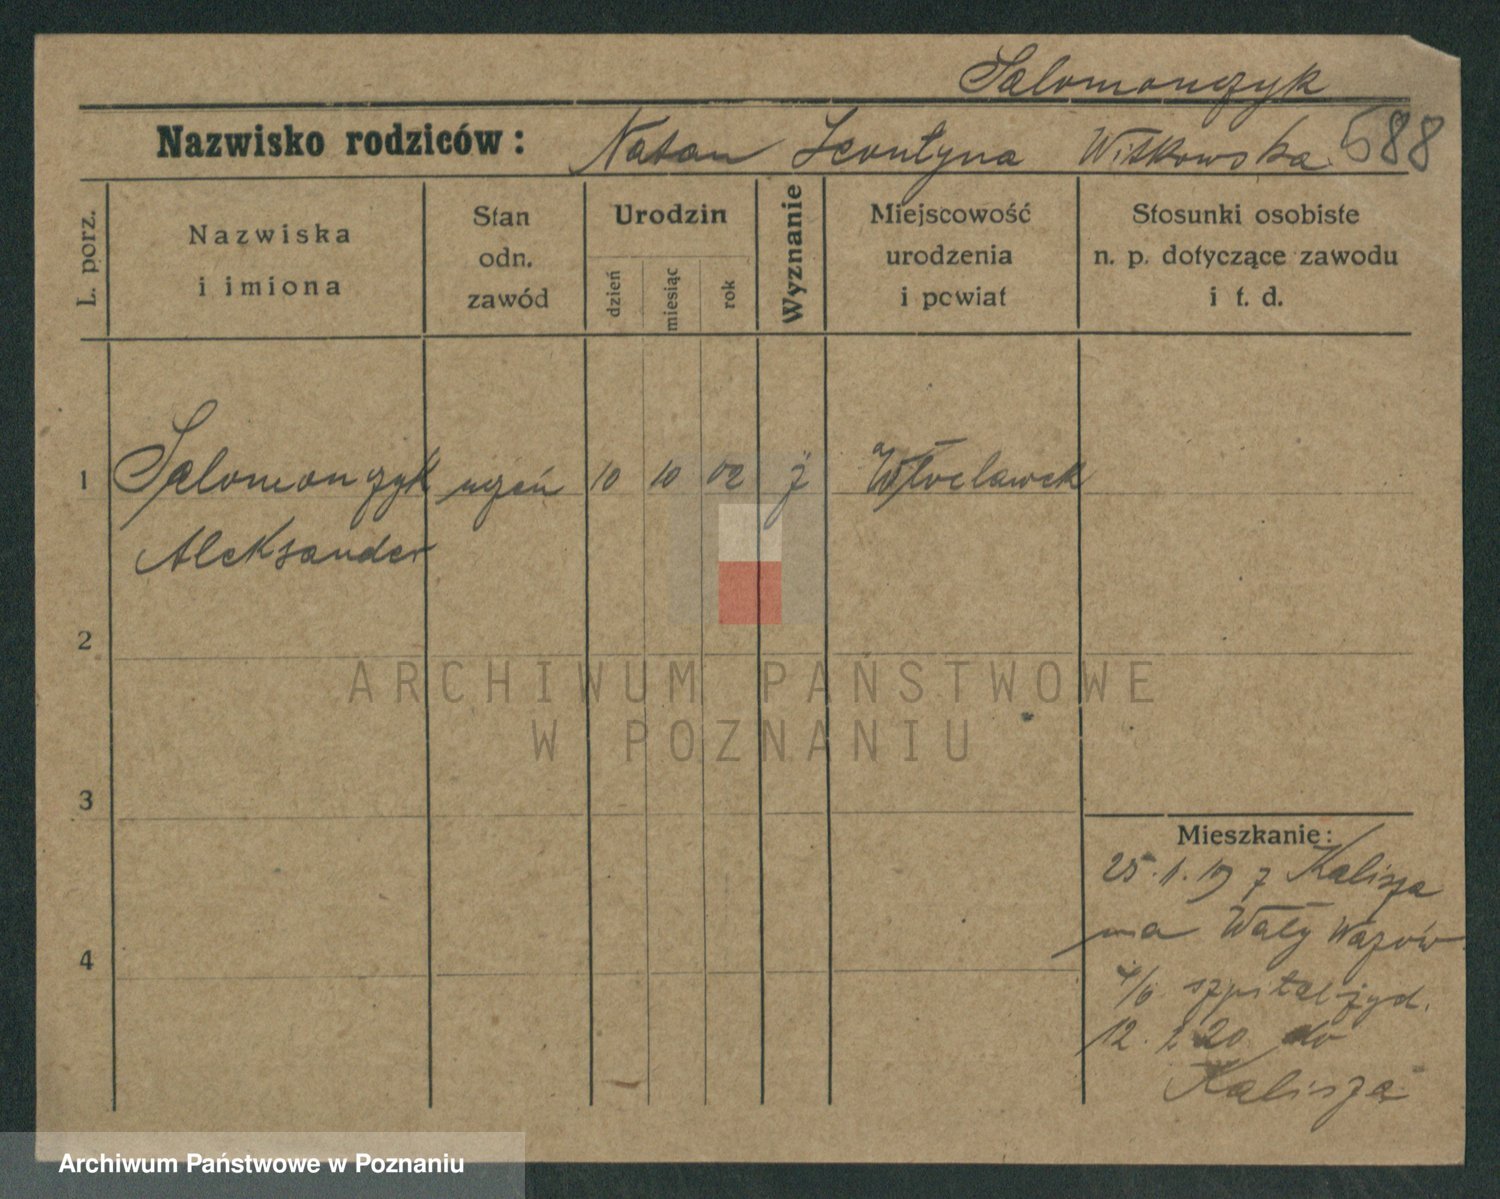 Salomończyk
Nazwisko rodziców: Natan Leontyna Witkowska 588
L. porz.
Nazwiska
i imiona
Stan
odn.
zawód
Urodzin
dzień
miesiąc
rok
Wyznanie
Miejscowość
urodzenia
i powiat
Stosunki osobiste
n. p. dotyczące zawodu
i t. d.
1 Salomończyk uczeń 10 10 02 j Włocławek
Aleksander
2
3
4
Mieszkanie:
25. 1. 19 z Kalisza
na Wały Wazów
4/6 szpital żyd.
12. 2 20 do
Kalisza
ARCHIWUM PAŃSTWOWE
W POZNANIU
Archiwum Państwowe w Poznaniu